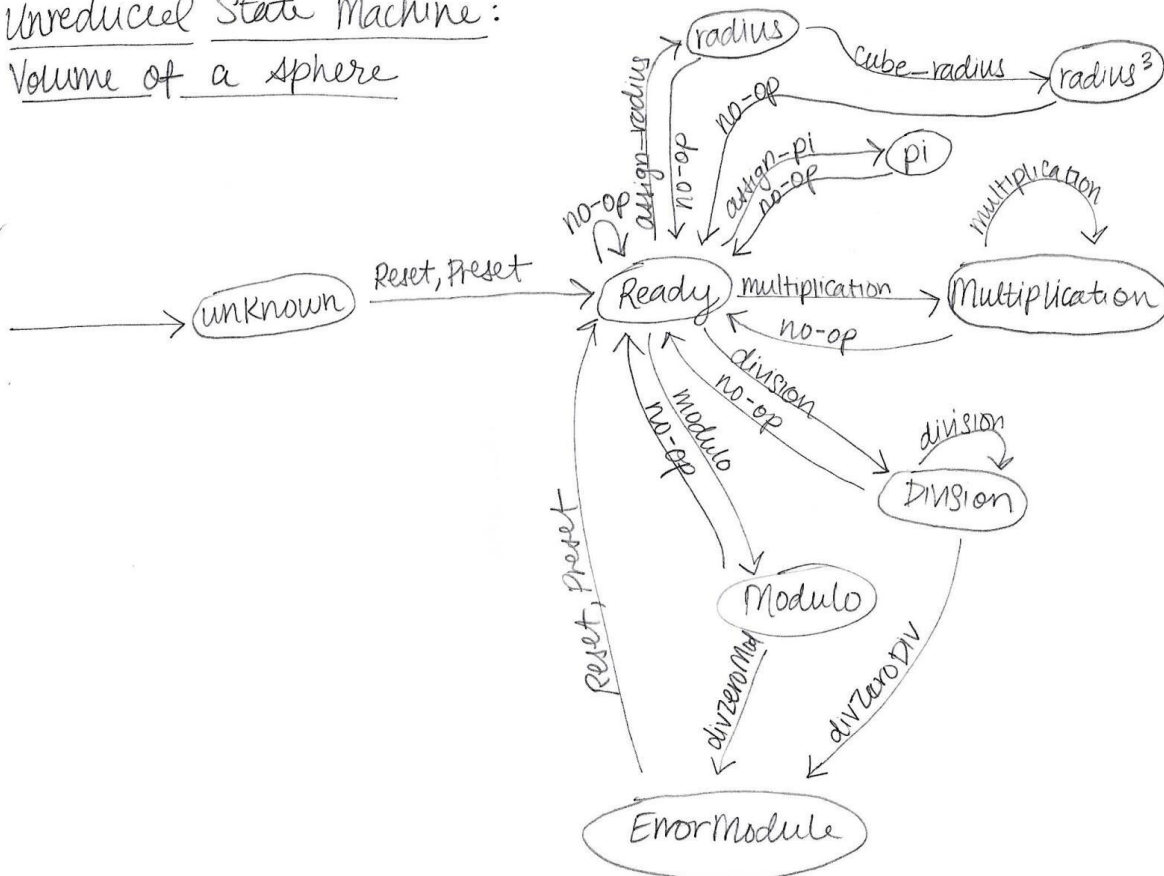 Unreduced State Machine:
Volume of a sphere
radius
cube-radius
radius³
assign-radius
no-op
no-op
assign-pi
no-op
pi
multiplication
no-op
unknown
Reset, Preset
Ready
multiplication
Multiplication
no-op
division
no-op
division
Division
modulo
no-op
Reset, Preset
Modulo
divzeroMod
divZeroDiv
ErrorModule